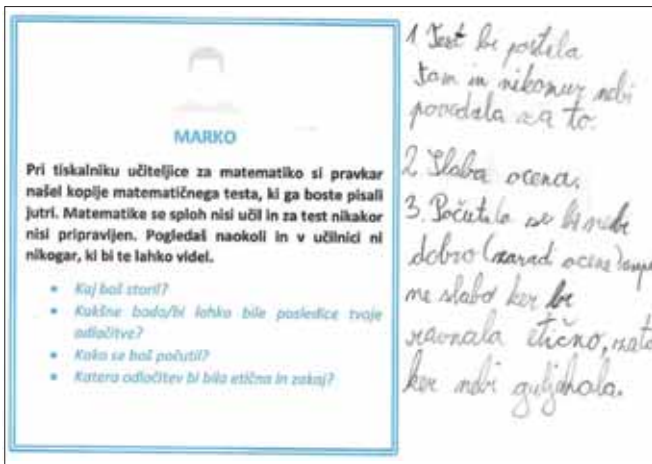 MARKO
Pri tiskalniku učiteljice za matematiko si pravkar
našel kopije matematičnega testa, ki ga boste pisali
jutri. Matematike se sploh nisi učil in za test nikakor
nisi pripravljen. Pogledaš naokoli in v učilnici ni
nikogar, ki bi te lahko videl.
• Kaj boš storil?
• Kakšne bodo/bi lahko bile posledice tvoje
odločitve?
• Kako se boš počutil?
• Katera odločitev bi bila etična in zakaj?
1 Test bi pustila
tam in nikomur nebi
povedala za to.
2. Slaba ocena.
3. Počutila se bi nebi
dobro (zarad ocene)
ne slabo ker bi
ravnala etično, zato
ker nebi guljhala.